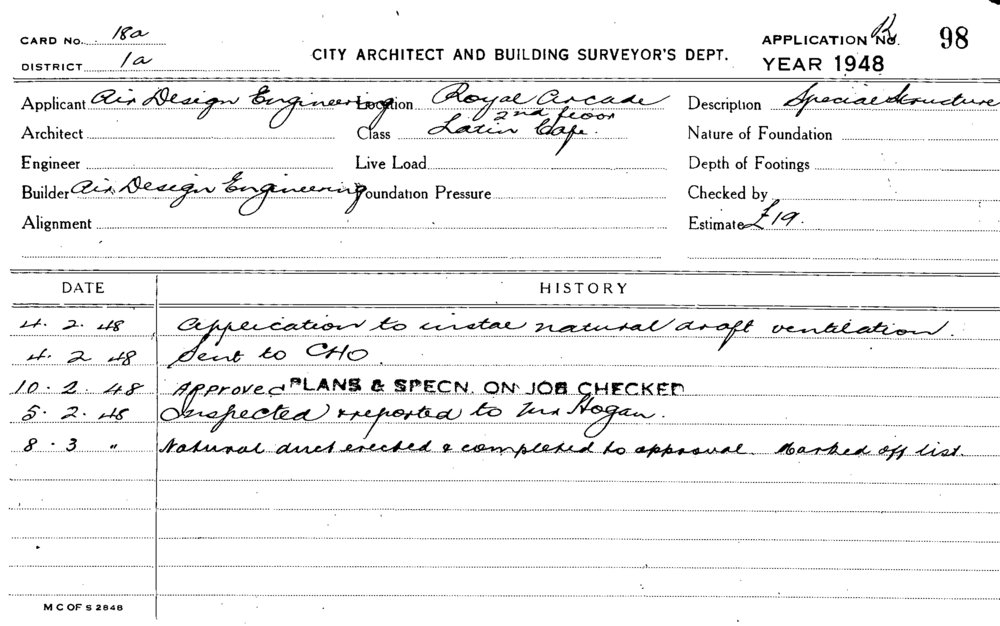 CARD No. 18a
DISTRICT 1a
CITY ARCHITECT AND BUILDING SURVEYOR'S DEPT.
APPLICATION No. B 98
YEAR 1948
Applicant Air Design Engineering Location Royal Arcade Description Special Structure
2nd floor
Architect Class Latin Cafe. Nature of Foundation
Engineer Live Load Depth of Footings
Builder Air Design Engineering Foundation Pressure Checked by
Alignment Estimate £19.
DATE HISTORY
4. 2. 48 Application to instal natural draft ventilation.
4. 2 48 Sent to CHO.
10. 2. 48 Approved PLANS & SPECN. ON JOB CHECKED
5. 2. 48 Inspected & reported to Mr Hogan.
8. 3 " Natural duct erected & completed to approval. Marked off list.
M C OF S 2848